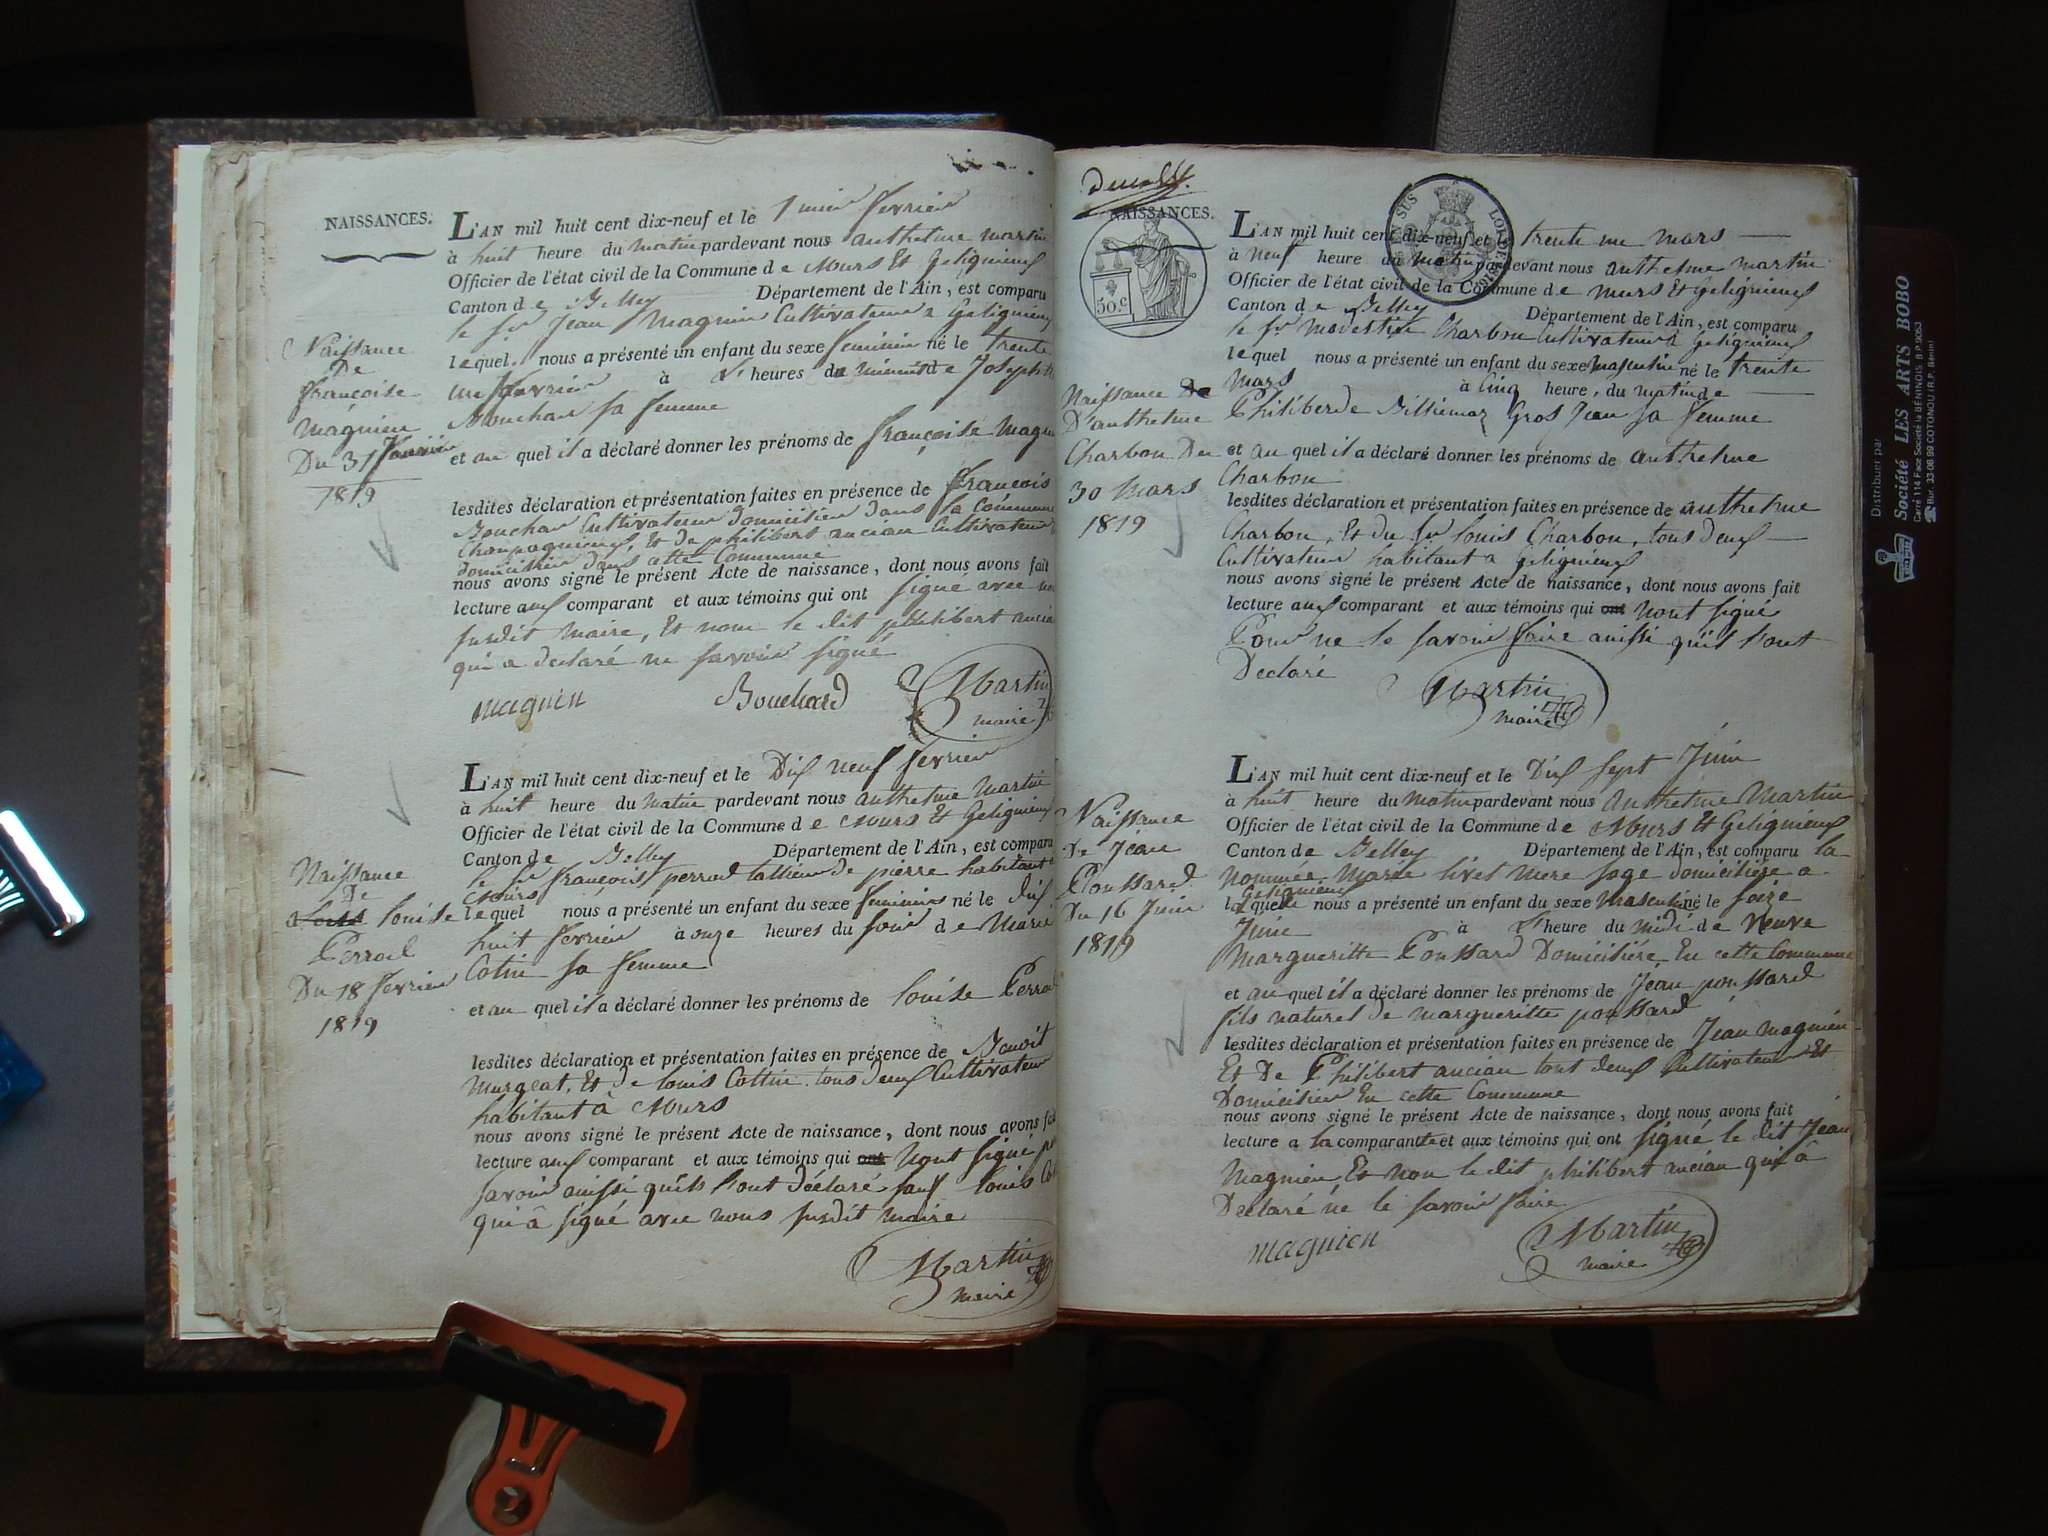 NAISSANCES.
L'AN mil huit cent dix-neuf et le 1 mier fevrier
à huit heure du matin pardevant nous anthelme martin
Officier de l'état civil de la Commune de Murs Et Geligneux
Canton de Belley Département de l'Ain, est comparu
le sr Jean Magnin Cultivateur a Geligneux
lequel nous a présenté un enfant du sexe feminin né le trente
un à heures de minuit de Joseph
Bouchar sa femme
et au quel il a déclaré donner les prénoms de françoise Magn
lesdites déclaration et présentation faites en présence de françois
Bouchar Cultivateur domicilier dans la Commune
Champagnieux, Et de philibert ancian Cultivateur
domicilier dans cette Commune
nous avons signé le présent Acte de naissance, dont nous avons fait
lecture aux comparant et aux témoins qui ont signé avec nou
susdit Maire, Et nom le dit philibert ancia
qui a declaré ne savoir signé
magnien Bouchard Martin
maire
Naissance
De
françoise
Magnien
Du 31 Janvier
1819
L'AN mil huit cent dix-neuf et le Dix neuf fevrier
à huit heure du matin pardevant nous anthelme Martin
Officier de l'état civil de la Commune de Murs Et Geligneux
Canton de Belley Département de l'Ain, est comparu
le sr françois perrod tallieur de pierre habitant a
Murs
lequel nous a présenté un enfant du sexe feminin né le dix
huit fevrier à onze heures du soir de Marie
Cotin sa femme
et au quel il a déclaré donner les prénoms de louise Perrod
lesdites déclaration et présentation faites en présence de Benoit
Murgeat, Et de louis Cottin tous deux Cultivateur
habitant à Murs
nous avons signé le présent Acte de naissance, dont nous avons fait
lecture aux comparant et aux témoins qui ont Nont signé p
savoir ainssi quils l'ont déclaré sauf louis Co
qui â signé avec nous susdit maire
Martin
maire
Naissance
De
louise
Perrod
Du 18 fevrier
1819
NAISSANCES.
50.c
SUS LOI DE 1816
L'AN mil huit cent dix-neuf et le trente un mars
à neuf heure du matin pardevant nous anthelme martin
Officier de l'état civil de la Commune de murs Et geligneux
Canton de Belley Département de l'Ain, est comparu
le sr Modeste Charbon Cultivateur a Geligneux
lequel nous a présenté un enfant du sexe masculin né le trente
mars à Cinq heure, du matin de
Philiberde Gros Jean sa femme
et au quel il a déclaré donner les prénoms de anthelme
Charbon
lesdites déclaration et présentation faites en présence de anthelme
Charbon, Et du sr louis Charbon, tous deux
Cultivateur habitant a Geligneux
nous avons signé le présent Acte de naissance, dont nous avons fait
lecture aux comparant et aux témoins qui ont Nont signé
Pour ne le savoir faire ainssi quils l'ont
Declaré
Martin
maire
Naissance De
D'anthelme
Charbon Du
30 Mars
1819
L'AN mil huit cent dix-neuf et le Dix sept Juin
à huit heure du Matin pardevant nous Anthelme Martin
Officier de l'état civil de la Commune de Murs Et Geligneux
Canton de Belley Département de l'Ain, est comparu la
Nommée Marie livet Mere sage domicilière a
Geligneux
laquelle nous a présenté un enfant du sexe Masculin né le seize
Juin à heure du midi de Veuve
Margueritte Poussard Domicilière En cette Commune
et au quel il a déclaré donner les prénoms de Jéan poussard
fils naturel de margueritte poussard
lesdites déclaration et présentation faites en présence de Jéan magnien
Et De Philibert ancian tout deux Cultivateur Et
Domicilier En cette Commune
nous avons signé le présent Acte de naissance, dont nous avons fait
lecture a la comparante et aux témoins qui ont signé le dit Jéan
Magnien, Et non le dit philibert ancian qui â
Declaré ne le savoir faire
magnien Martin
maire
Naissance
De Jéan
Poussard
Du 16 Juin
1819
Distribuer par
Société LES ARTS BOBO
Carré 114 Face Société la BÉNINOIS B.P. 9053
Bur. 33 06 99 COTONOU (R.P. Bénin)